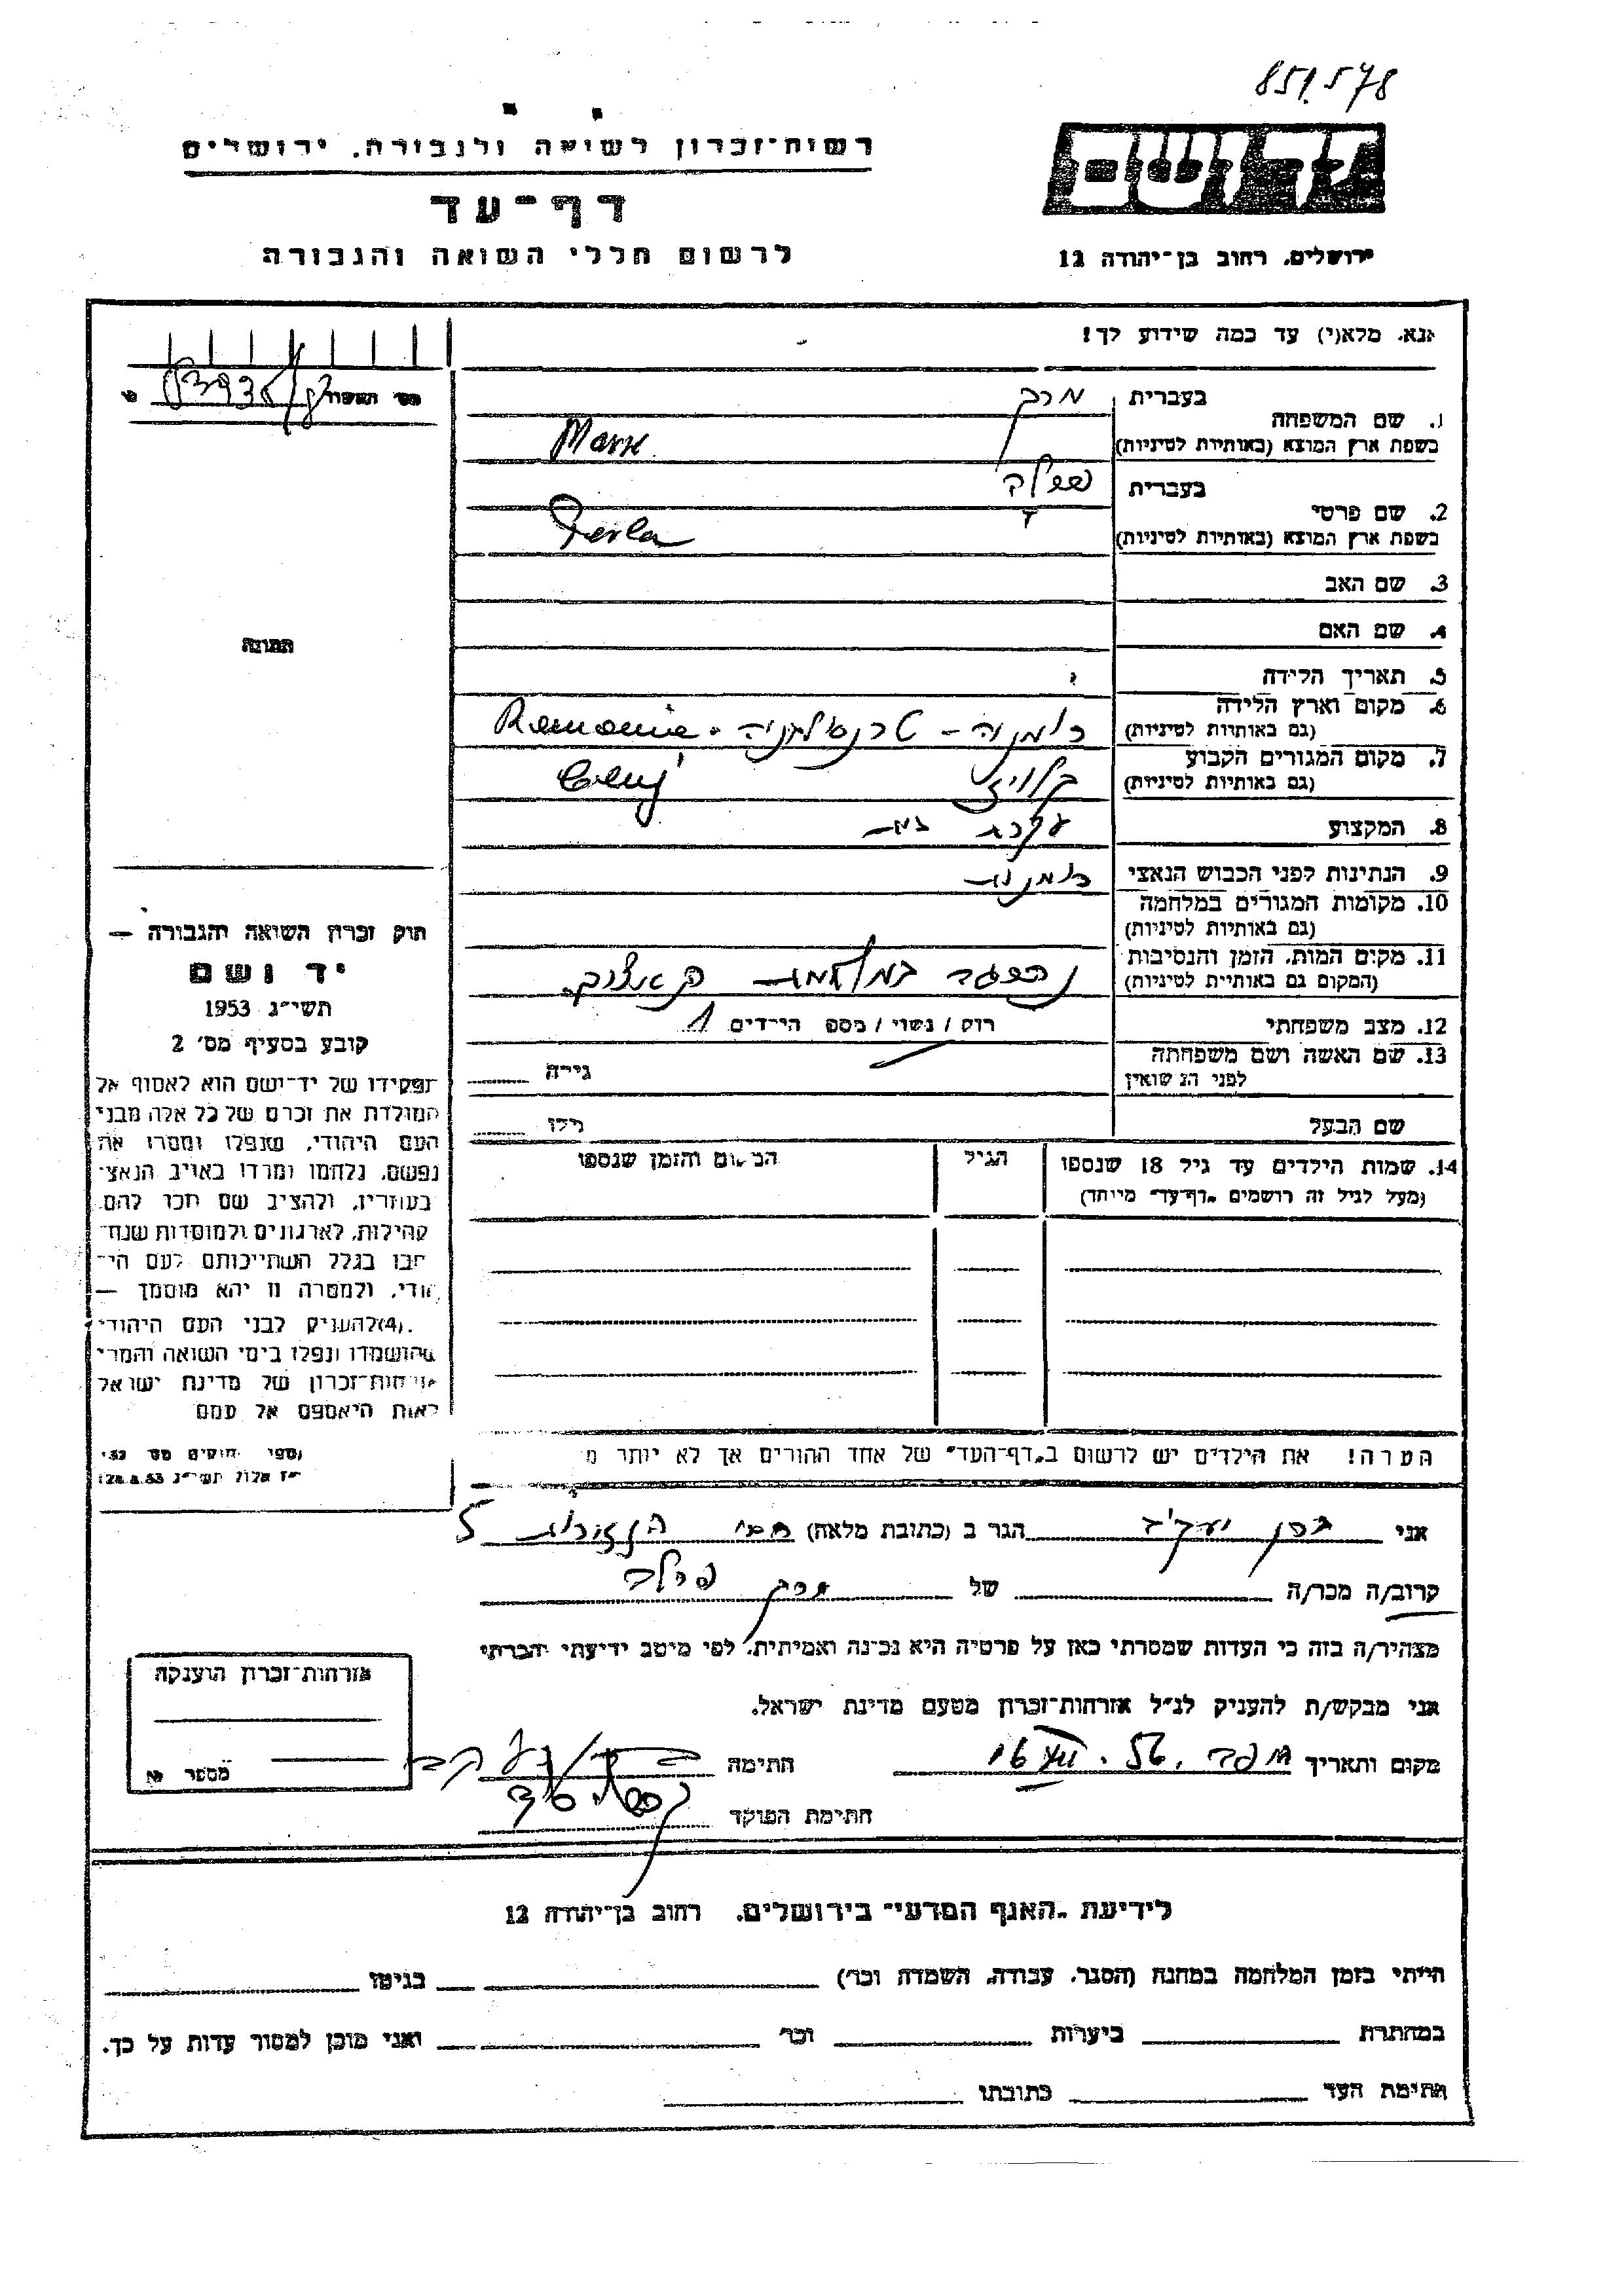 851.578
רשות־זכרון לשואה ולגבורה, ירושלים
דף־עד
לרשום חללי השואה והגבורה
ירושלים, רחוב בן־יהודה 12
נא, מלא(י) עד כמה שידוע לך!
1. שם המשפחה
בעברית
בשפת ארץ המוצא (באותיות לטיניות)
2. שם פרטי
בעברית
בשפת ארץ המוצא (באותיות לטיניות)
Perla
3. שם האב
4. שם האם
5. תאריך הלידה
6. מקום וארץ הלידה
(גם באותיות לטיניות)
רומניה - טרנסילבניה - Romania
7. מקום המגורים הקבוע
(גם באותיות לטיניות)
קלוז' Cluj
8. המקצוע
עקרת בית
9. הנתינות לפני הכבוש הנאצי
רומנית
10. מקומות המגורים במלחמה
(גם באותיות לטיניות)
11. מקום המות, הזמן והנסיבות
(המקום גם באותיות לטיניות)
12. מצב משפחתי
רווק / נשוי / מספר הילדים 1
13. שם האשה ושם משפחתה
לפני הנישואין
גילה
שם הבעל
גילו
14. שמות הילדים עד גיל 18 שנספו
(מעל לגיל זה רושמים „דף־עד" מיוחד)
הגיל
המקום והזמן שנספו
הערה! את הילדים יש לרשום ב„דף־העד" של אחד ההורים אך לא יותר מ
תמונה
חוק זכרון השואה והגבורה —
יד ושם
תשי"ג 1953
קובע בסעיף מס' 2
תפקידו של יד־ושם הוא לאסוף אל
המולדת את זכרם של כל אלה מבני
העם היהודי, שנפלו ומסרו את
נפשם, נלחמו ומרדו באויב הנאצי
בעוזריו, ולהציב שם וזכר להם,
קהילות, לארגונים ולמוסדות שנח־
רבו בגלל השתייכותם לעם הי־
הודי, ולמטרה זו יהא מוסמך —
(4) להעניק לבני העם היהודי
שהושמדו ונפלו בימי השואה והמרי
אזרחות־זכרון של מדינת ישראל
לאות היאספם אל עמם
אני יעקב הגר ב (כתובת מלאה) 5
קרוב/ה מכר/ה של פרלה
מצהיר/ה בזה כי העדות שמסרתי כאן על פרטיה היא נכונה ואמיתית, לפי מיטב ידיעתי והכרתי
אני מבקש/ת להעניק לנ"ל אזרחות־זכרון מטעם מדינת ישראל.
מקום ותאריך
חתימה
חתימת הפוקד
אזרחות־זכרון הוענקה
מספר
לידיעת „האגף המדעי" בירושלים, רחוב בן־יהודה 12
הייתי בזמן המלחמה במחנה (הסגר, עבודה, השמדה וכו') בגיטו
במחתרת ביערות וכו' ואני מוכן למסור עדות על כך.
חתימת העד כתובתו